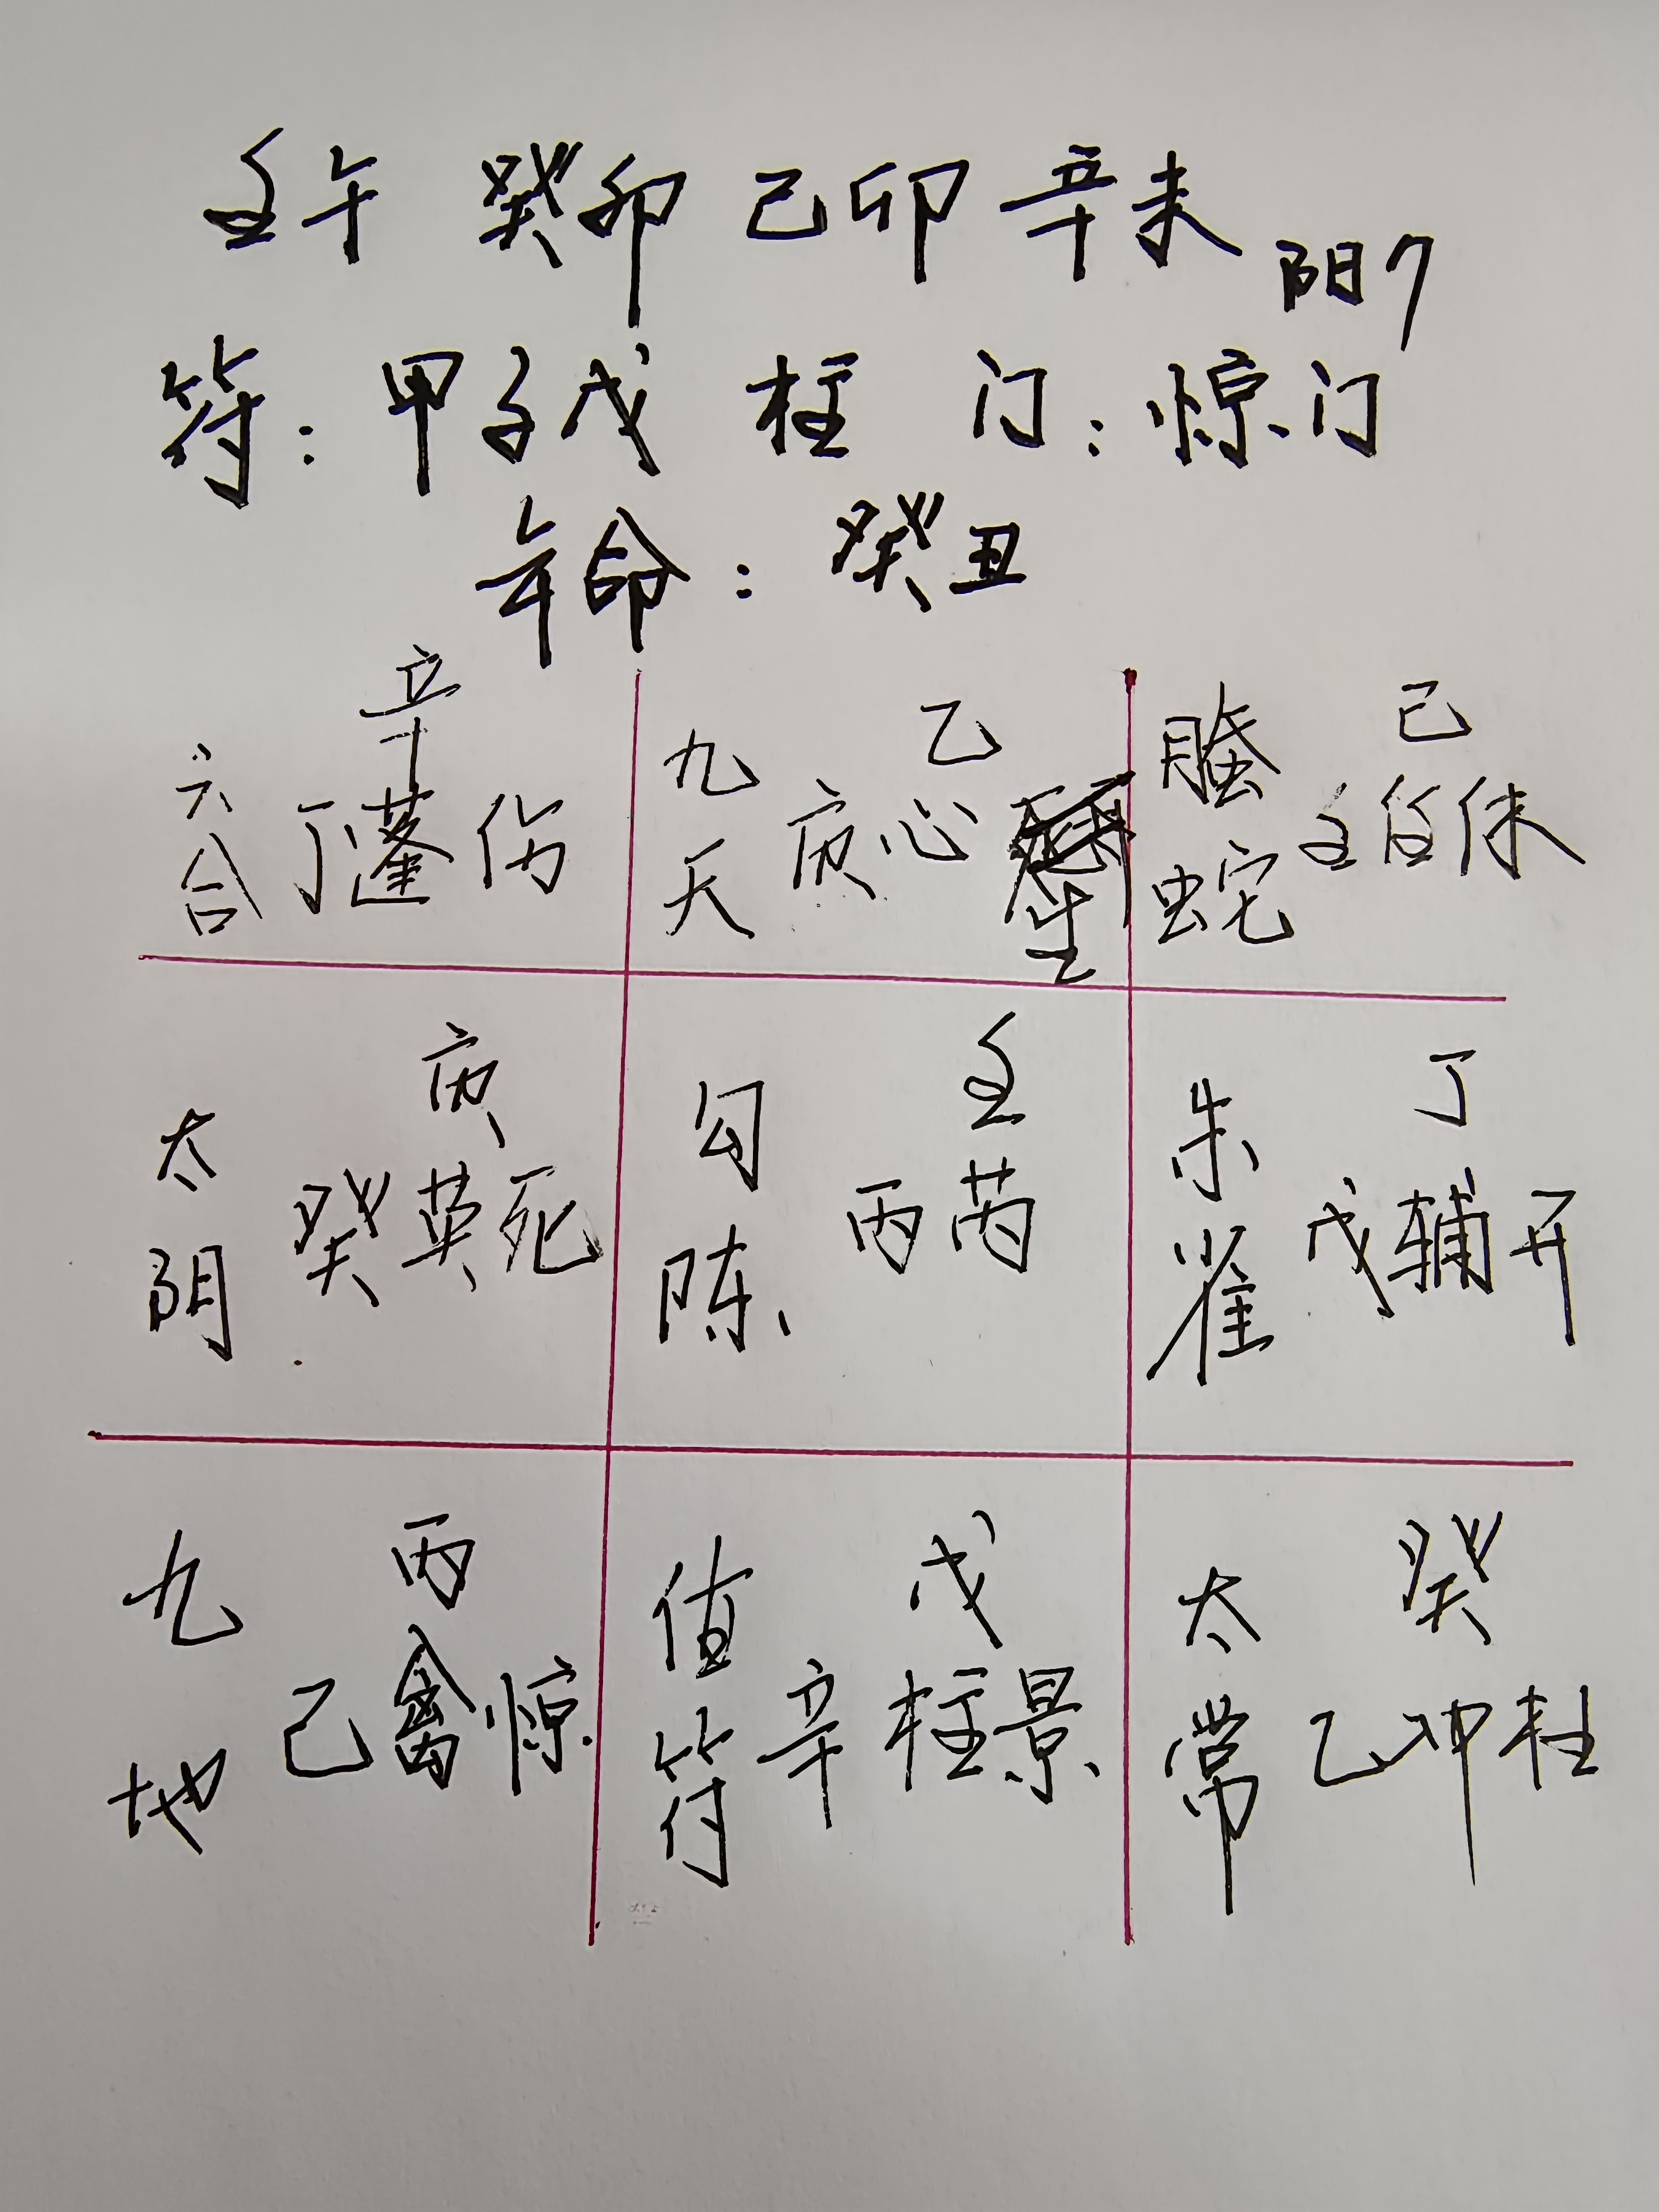 壬午 癸卯 己卯 辛未 阴7
符：甲子戊 柱 门：惊门
年命：癸丑
辛
六合 丁蓬伤
乙
九天 庚心 生
己
螣蛇 壬任休
庚
太阴 癸英死
壬
勾陈 丙芮
丁
朱雀 戊辅开
丙
九地 己禽惊
戊
值符 辛柱景
癸
太常 乙冲杜